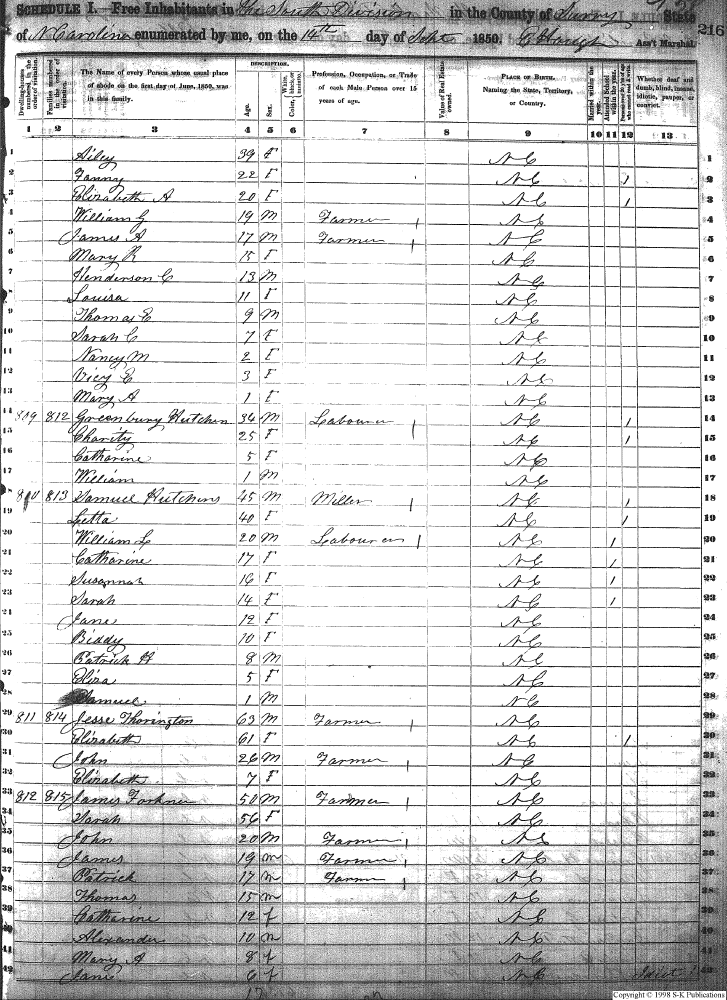 SCHEDULE I.—Free Inhabitants in the South Division in the County of Surry State
of N Carolina enumerated by me, on the 14th day of Sept 1850. Ass't Marshal. 216
Dwelling-houses numbered in the order of visitation.
Families numbered in the order of visitation.
The Name of every Person whose usual place of abode on the first day of June, 1850, was in this family.
DESCRIPTION.
Age.
Sex.
Color, White, black, or mulatto.
Profession, Occupation, or Trade of each Male Person over 15 years of age.
Value of Real Estate owned.
PLACE OF BIRTH. Naming the State, Territory, or Country.
Married within the year.
Attended School within the year.
Persons over 20 y'rs of age who cannot read & write.
Whether deaf and dumb, blind, insane, idiotic, pauper, or convict.
1 2 3 4 5 6 7 8 9 10 11 12 13
1 Ailey 39 F NC 1
2 Fanny 22 F NC 1 2
3 Elizabeth A 20 F NC 1 3
4 William G 19 M Farmer 1 NC 4
5 James A 17 M Farmer 1 NC 5
6 Mary R 15 F NC 6
7 Henderson C 13 M NC 7
8 Louisa 11 F NC 8
9 Thomas E 9 M NC 9
10 Sarah C 7 F NC 10
11 Nancy M 2 F NC 11
12 Vicy E 3 F NC 12
13 Mary A 1 F NC 13
14 809 812 Greenbury Hutchin 34 M Labourer 1 NC 1 14
15 Charity 25 F NC 1 15
16 Catharine 5 F NC 16
17 William 1 M NC 17
18 810 813 Samuel Hutchins 45 M Miller 1 NC 1 18
19 Letta 40 F NC 1 19
20 William L 20 M Labourer 1 NC 1 20
21 Catharine 17 F NC 1 21
22 Susannah 16 F NC 1 22
23 Sarah 14 F NC 1 23
24 Jane 12 F NC 24
25 Biddy 10 F NC 25
26 Patrick H 8 M NC 26
27 Eliza 5 F NC 27
28 Samuel 1 M NC 28
29 811 814 Jesse Thorington 63 M Farmer 1 NC 29
30 Elizabeth 61 F NC 1 30
31 John 26 M Farmer 1 NC 31
32 Elizabeth 7 F NC 32
33 812 815 James Forkner 50 M Farmer 1 NC 33
34 Sarah 56 F NC 34
35 John 20 M Farmer 1 NC 35
36 James 19 m Farmer 1 NC 36
37 Patrick 17 m Farm 1 NC 37
38 Thomas 15 m NC 38
39 Catharine 12 f NC 39
40 Alexander 10 m NC 40
41 Mary A 8 f NC 41
42 Jane 6 f NC 42
Copyright © 1998 S-K Publications